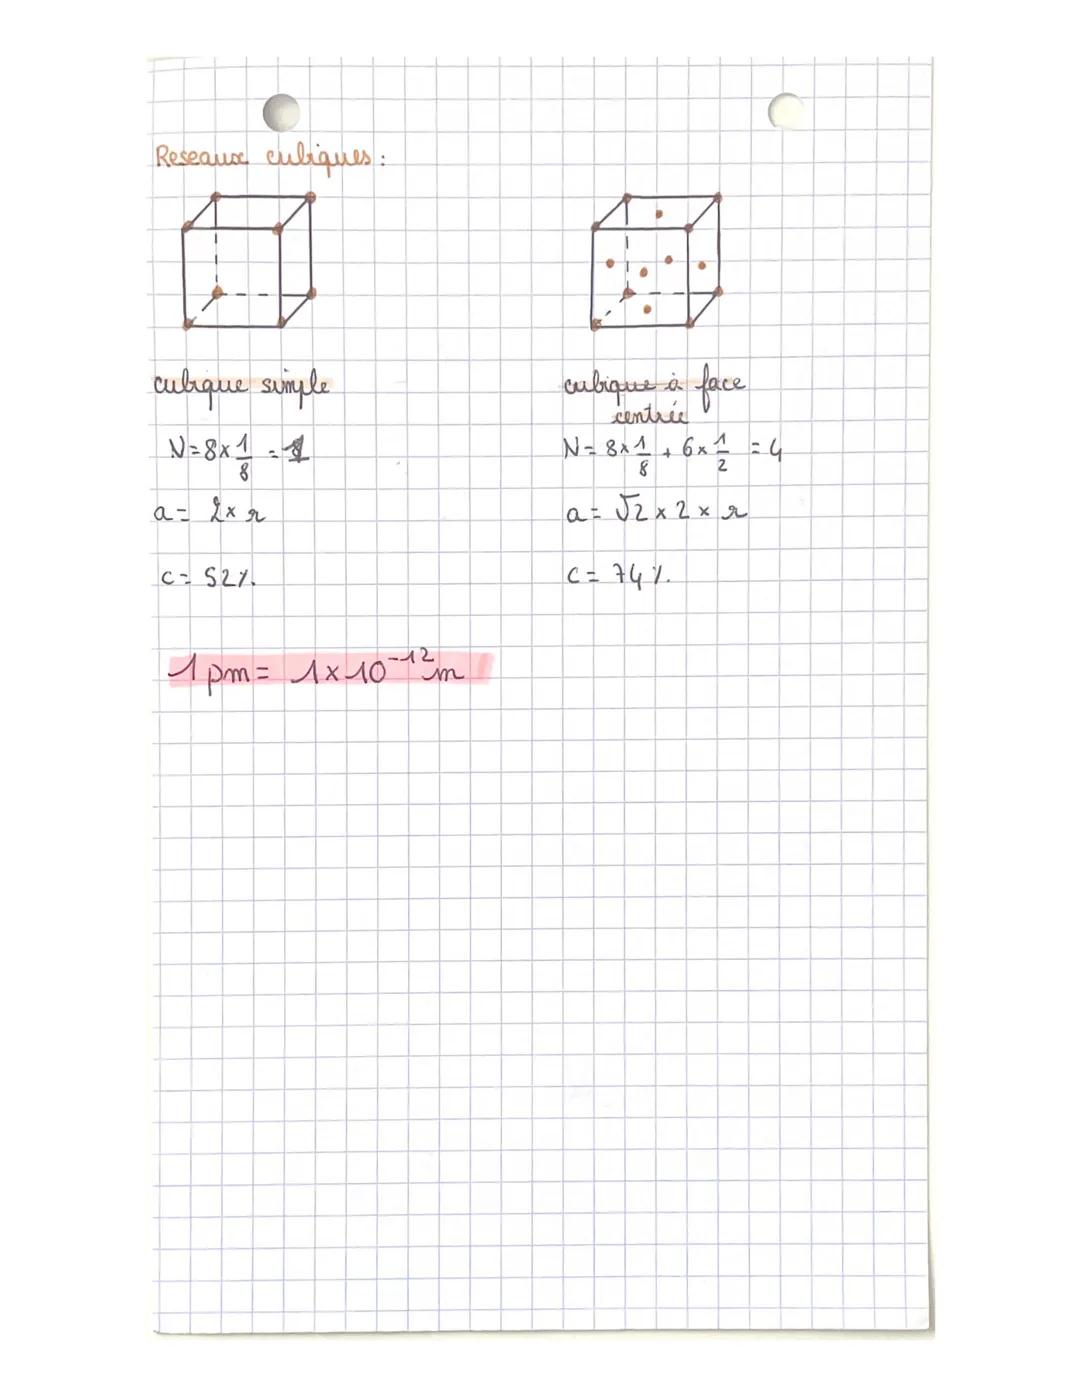 Reseaux cubiques :
cubique simple
N = 8 × 1/8 = 1
a = 2 × r
c = 52 %.
cubique à face
centrée
N = 8 × 1/8 + 6 × 1/2 = 4
a = √2 × 2 × r
c = 74 %.
1 pm = 1 × 10⁻¹² m